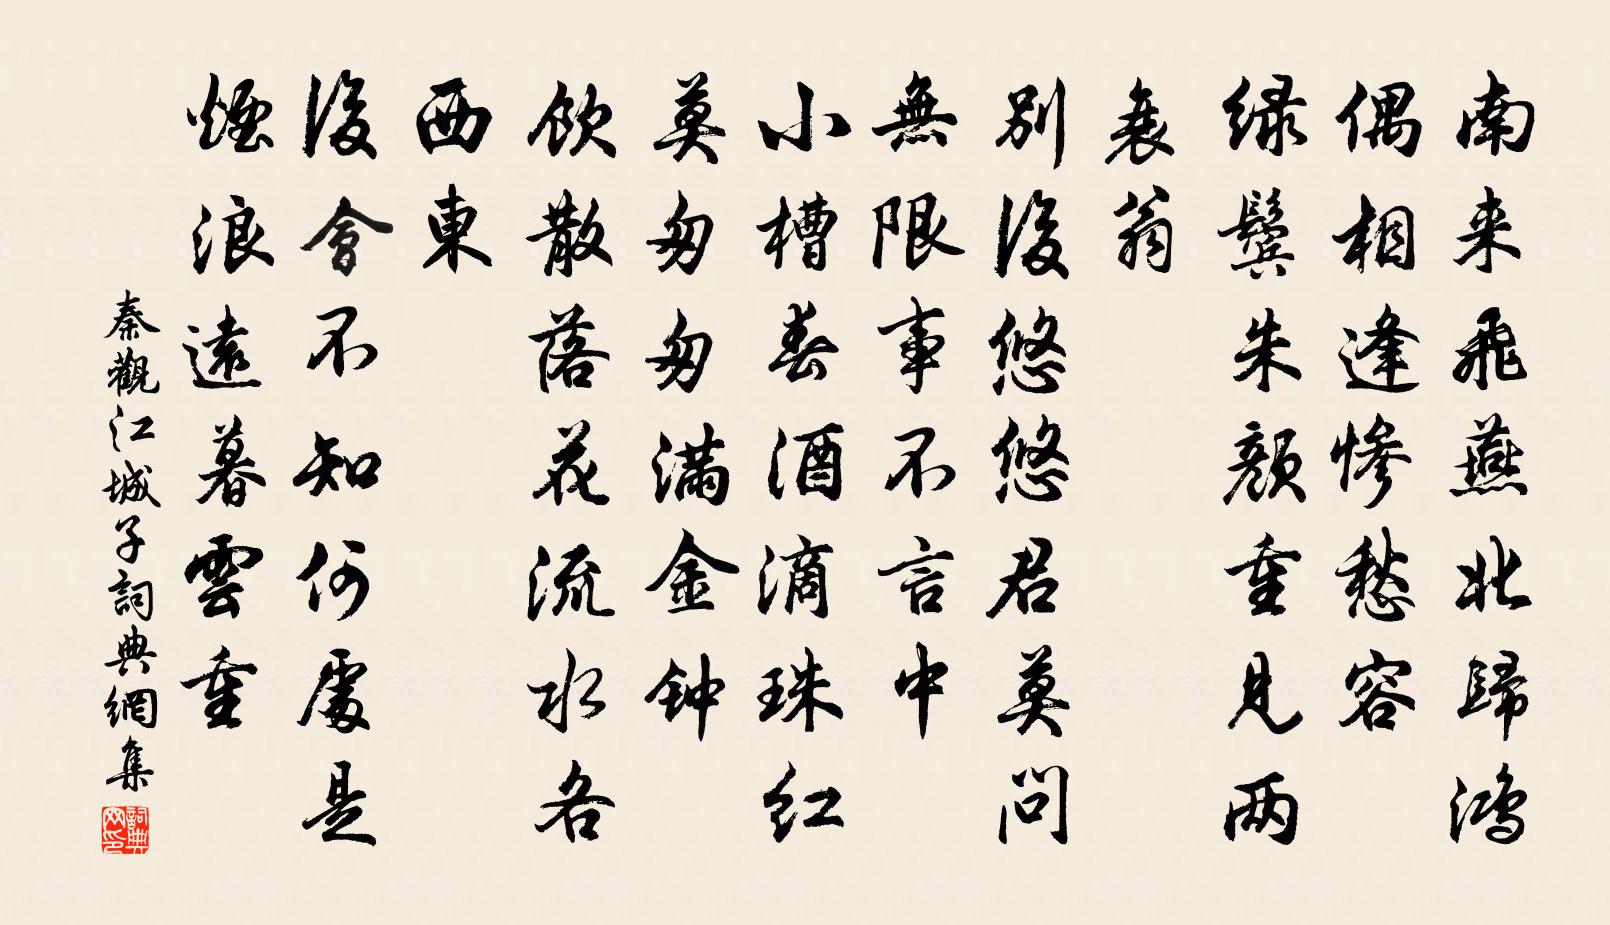 南来飛燕北歸鴻
偶相逢慘愁容
绿鬢朱顔重見两
衰翁
別後悠悠君莫問
無限事不言中
小槽春酒滴珠红
莫匆匆满金钟
飲散落花流水各
西東
後會不知何處是
煙浪遠暮雲重
秦觀江城子詞典網集
詞典網印